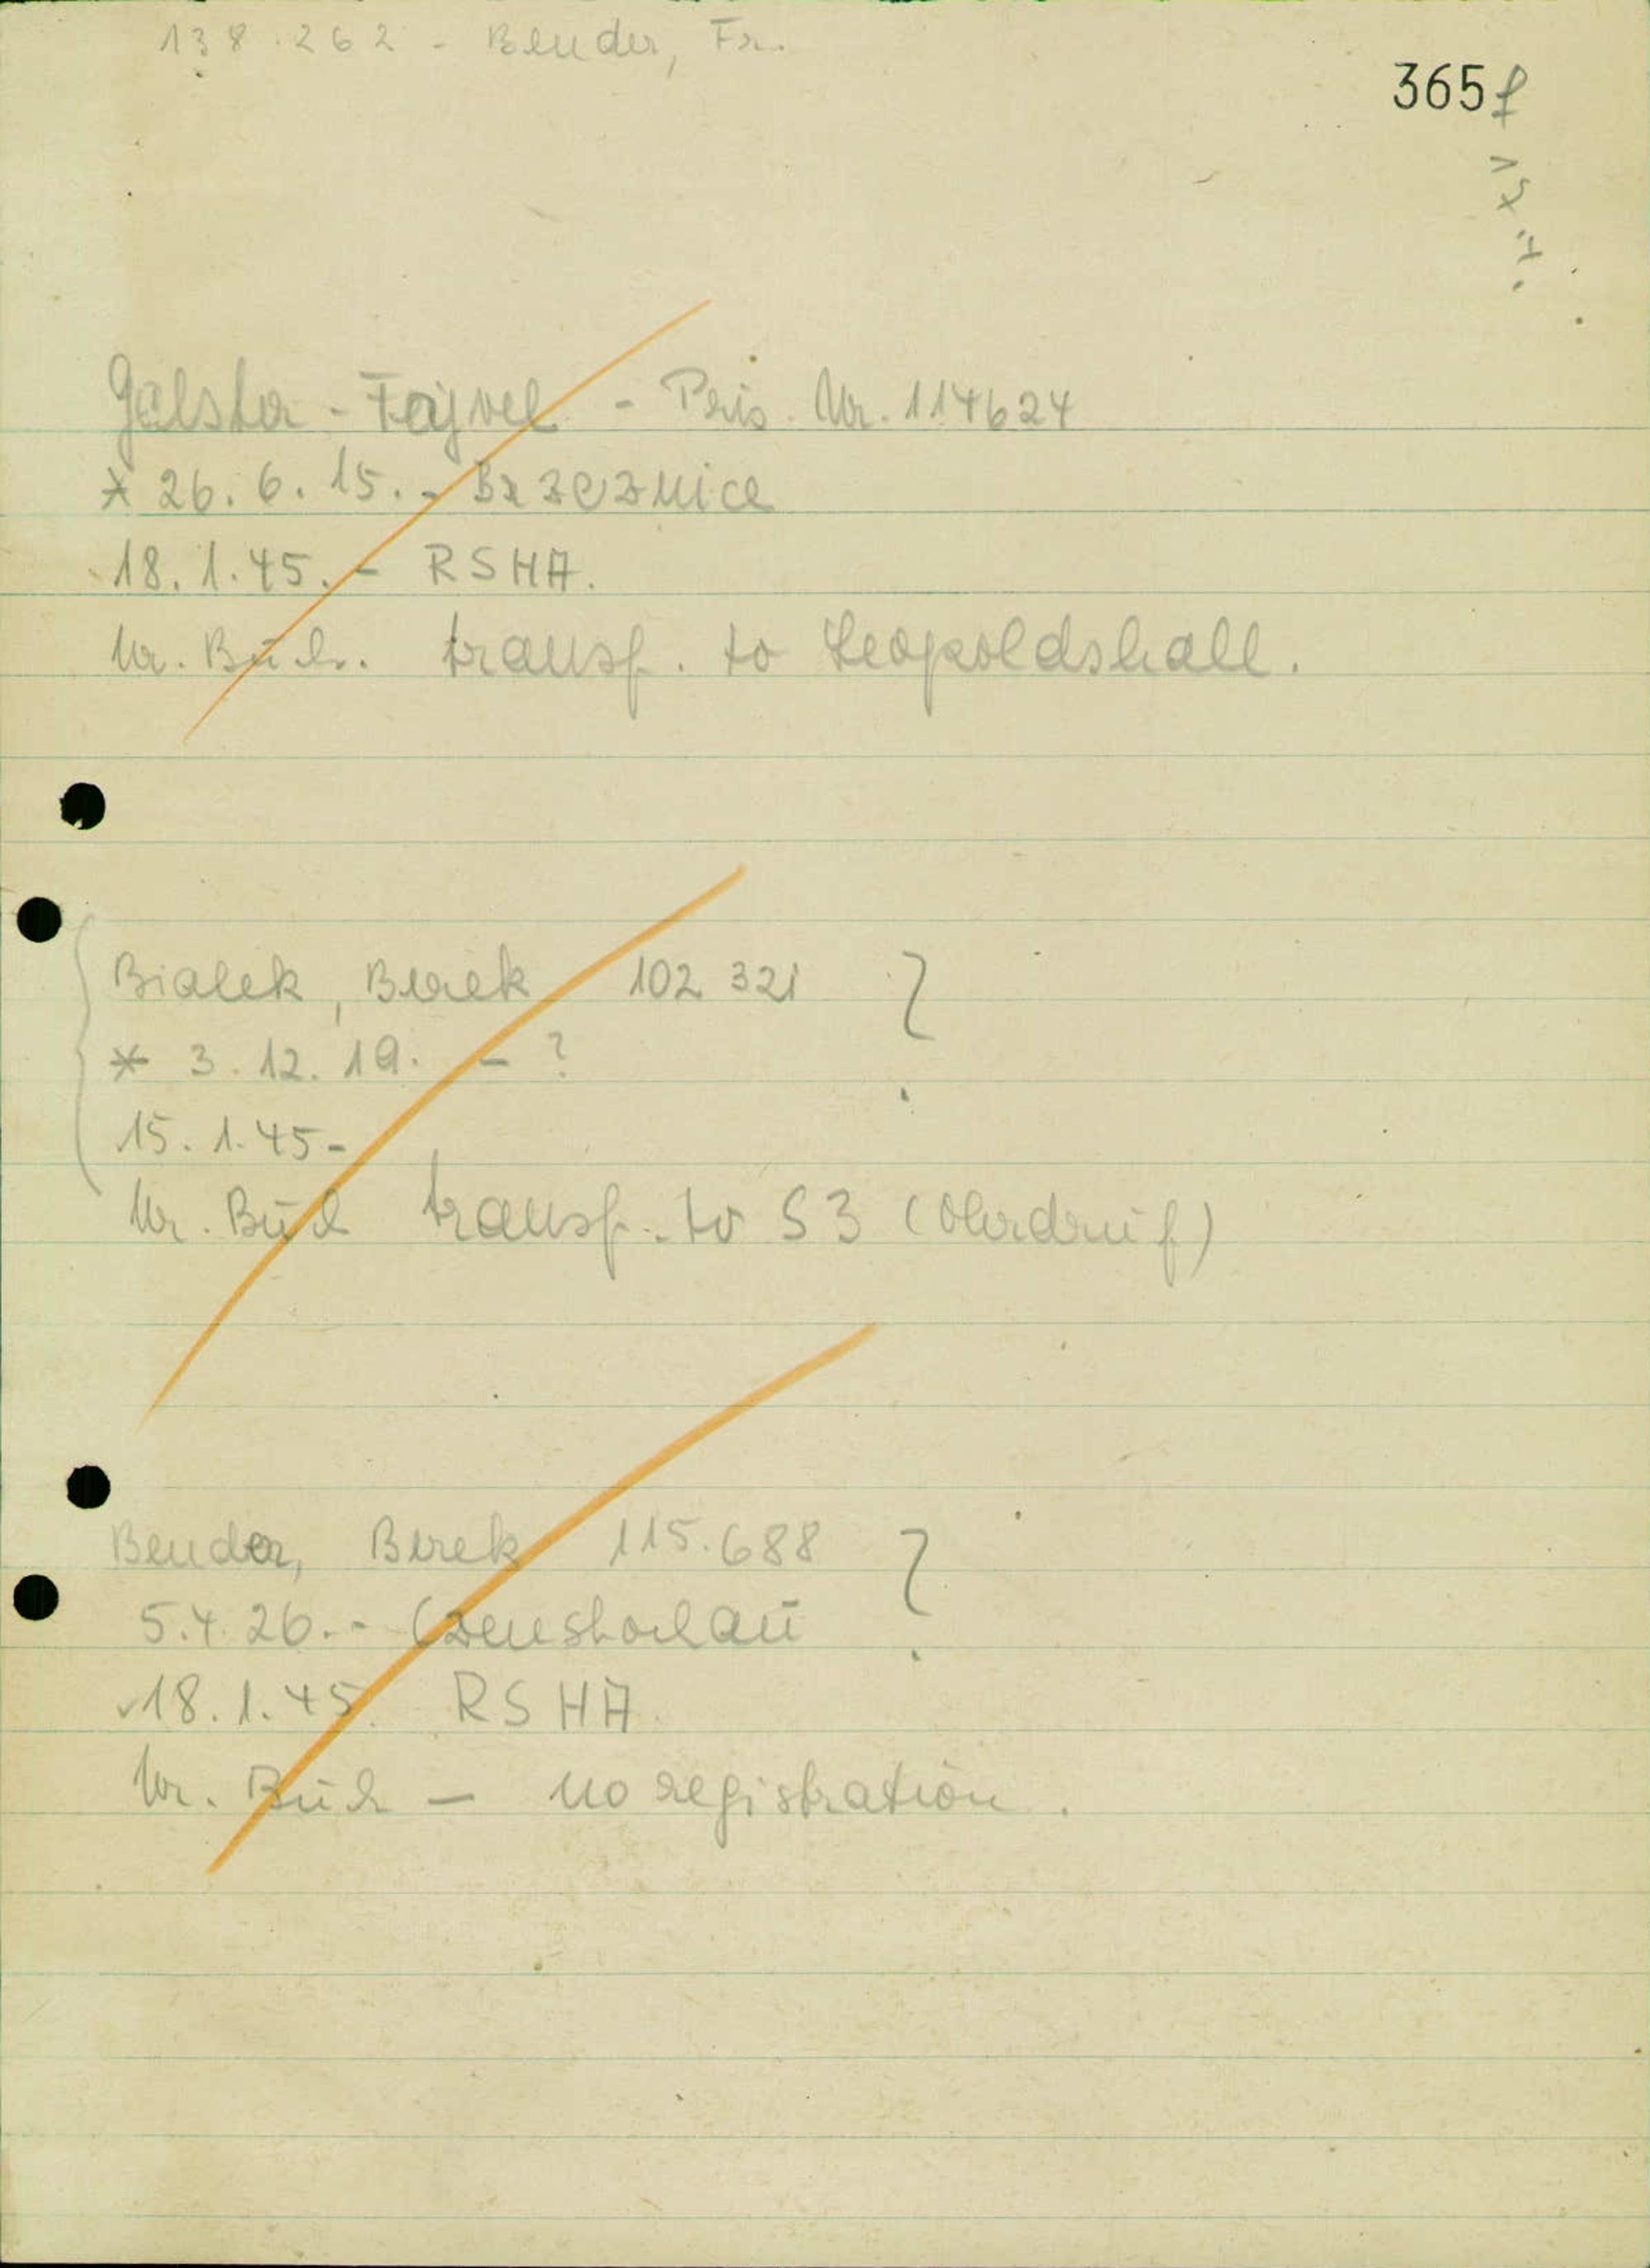 138.262 - Bender, Fr.
365 f
Galster - Fajvel - Pris. Nr. 114624
* 26. 6. 15. - Brzeznice
18. 1. 45. - RSHA.
Nr. Büch. transf. to Leopoldshall.
Bialek, Berek 102 321 ?
* 3. 12. 19. - ?
15. 1. 45 -
Nr. Büch transf. to S3 (Ohrdruf)
Bender, Berek 115.688 ?
5.4.26. - Czenstochau
18. 1. 45. RSHA.
Nr. Büch - no registration.